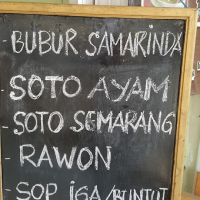 - BUBUR SAMARINDA
- SOTO AYAM
- SOTO SEMARANG
- RAWON
- SOP IGA/BUNTUT